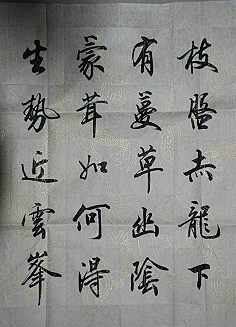 枝盤赤龍下
有蔓草幽陰
蒙茸如何得
生勢近雲峯